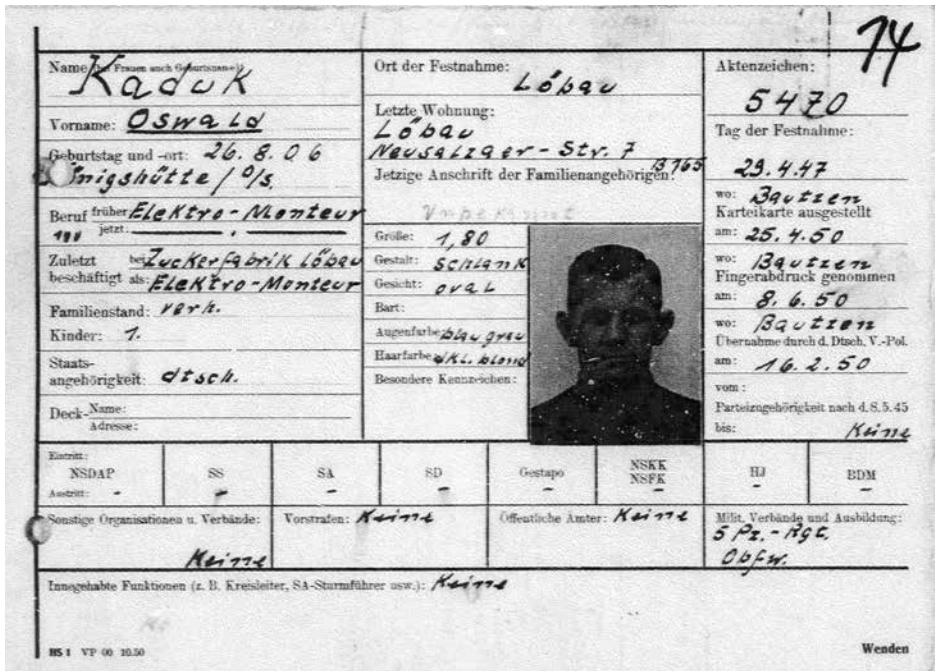 74
Name (bei Frauen auch Geburtsname): Kaduk
Vorname: Oswald
Geburtstag und -ort: 26.8.06
Königshütte / O/S.
Beruf früher Elektro-Monteur
jetzt:
Zuletzt bei Zuckerfabrik Löbau
beschäftigt als: Elektro-Monteur
Familienstand: verh.
Kinder: 1.
Staats-
angehörigkeit: dtsch.
Deck- Name:
Adresse:
Ort der Festnahme:
Löbau
Letzte Wohnung:
Löbau
Neusalzaer-Str. 7
Jetzige Anschrift der Familienangehörigen:
Unbekannt
Größe: 1,80
Gestalt: schlank
Gesicht: oval
Bart:
Augenfarbe blaugrau
Haarfarbe dkl. blond
Besondere Kennzeichen:
Aktenzeichen:
5470
Tag der Festnahme:
29.4.47
wo: Bautzen
Karteikarte ausgestellt
am: 25.4.50
wo: Bautzen
Fingerabdruck genommen
am: 8.6.50
wo: Bautzen
Übernahme durch d. Dtsch. V.-Pol.
am: 16.2.50
vom:
Parteizugehörigkeit nach d. 8.5.45
bis: Keine
Eintritt:
NSDAP SS SA SD Gestapo NSKK NSFK HJ BDM
Austritt: - - - - - - - -
Sonstige Organisationen u. Verbände:
Keine
Vorstrafen: Keine
Öffentliche Ämter: Keine
Milit. Verbände und Ausbildung:
5 Pz.-Rgt.
Obfw.
Innegehabte Funktionen (z. B. Kreisleiter, SA-Sturmführer usw.): Keine
HS 1 VP 00 10.50
Wenden